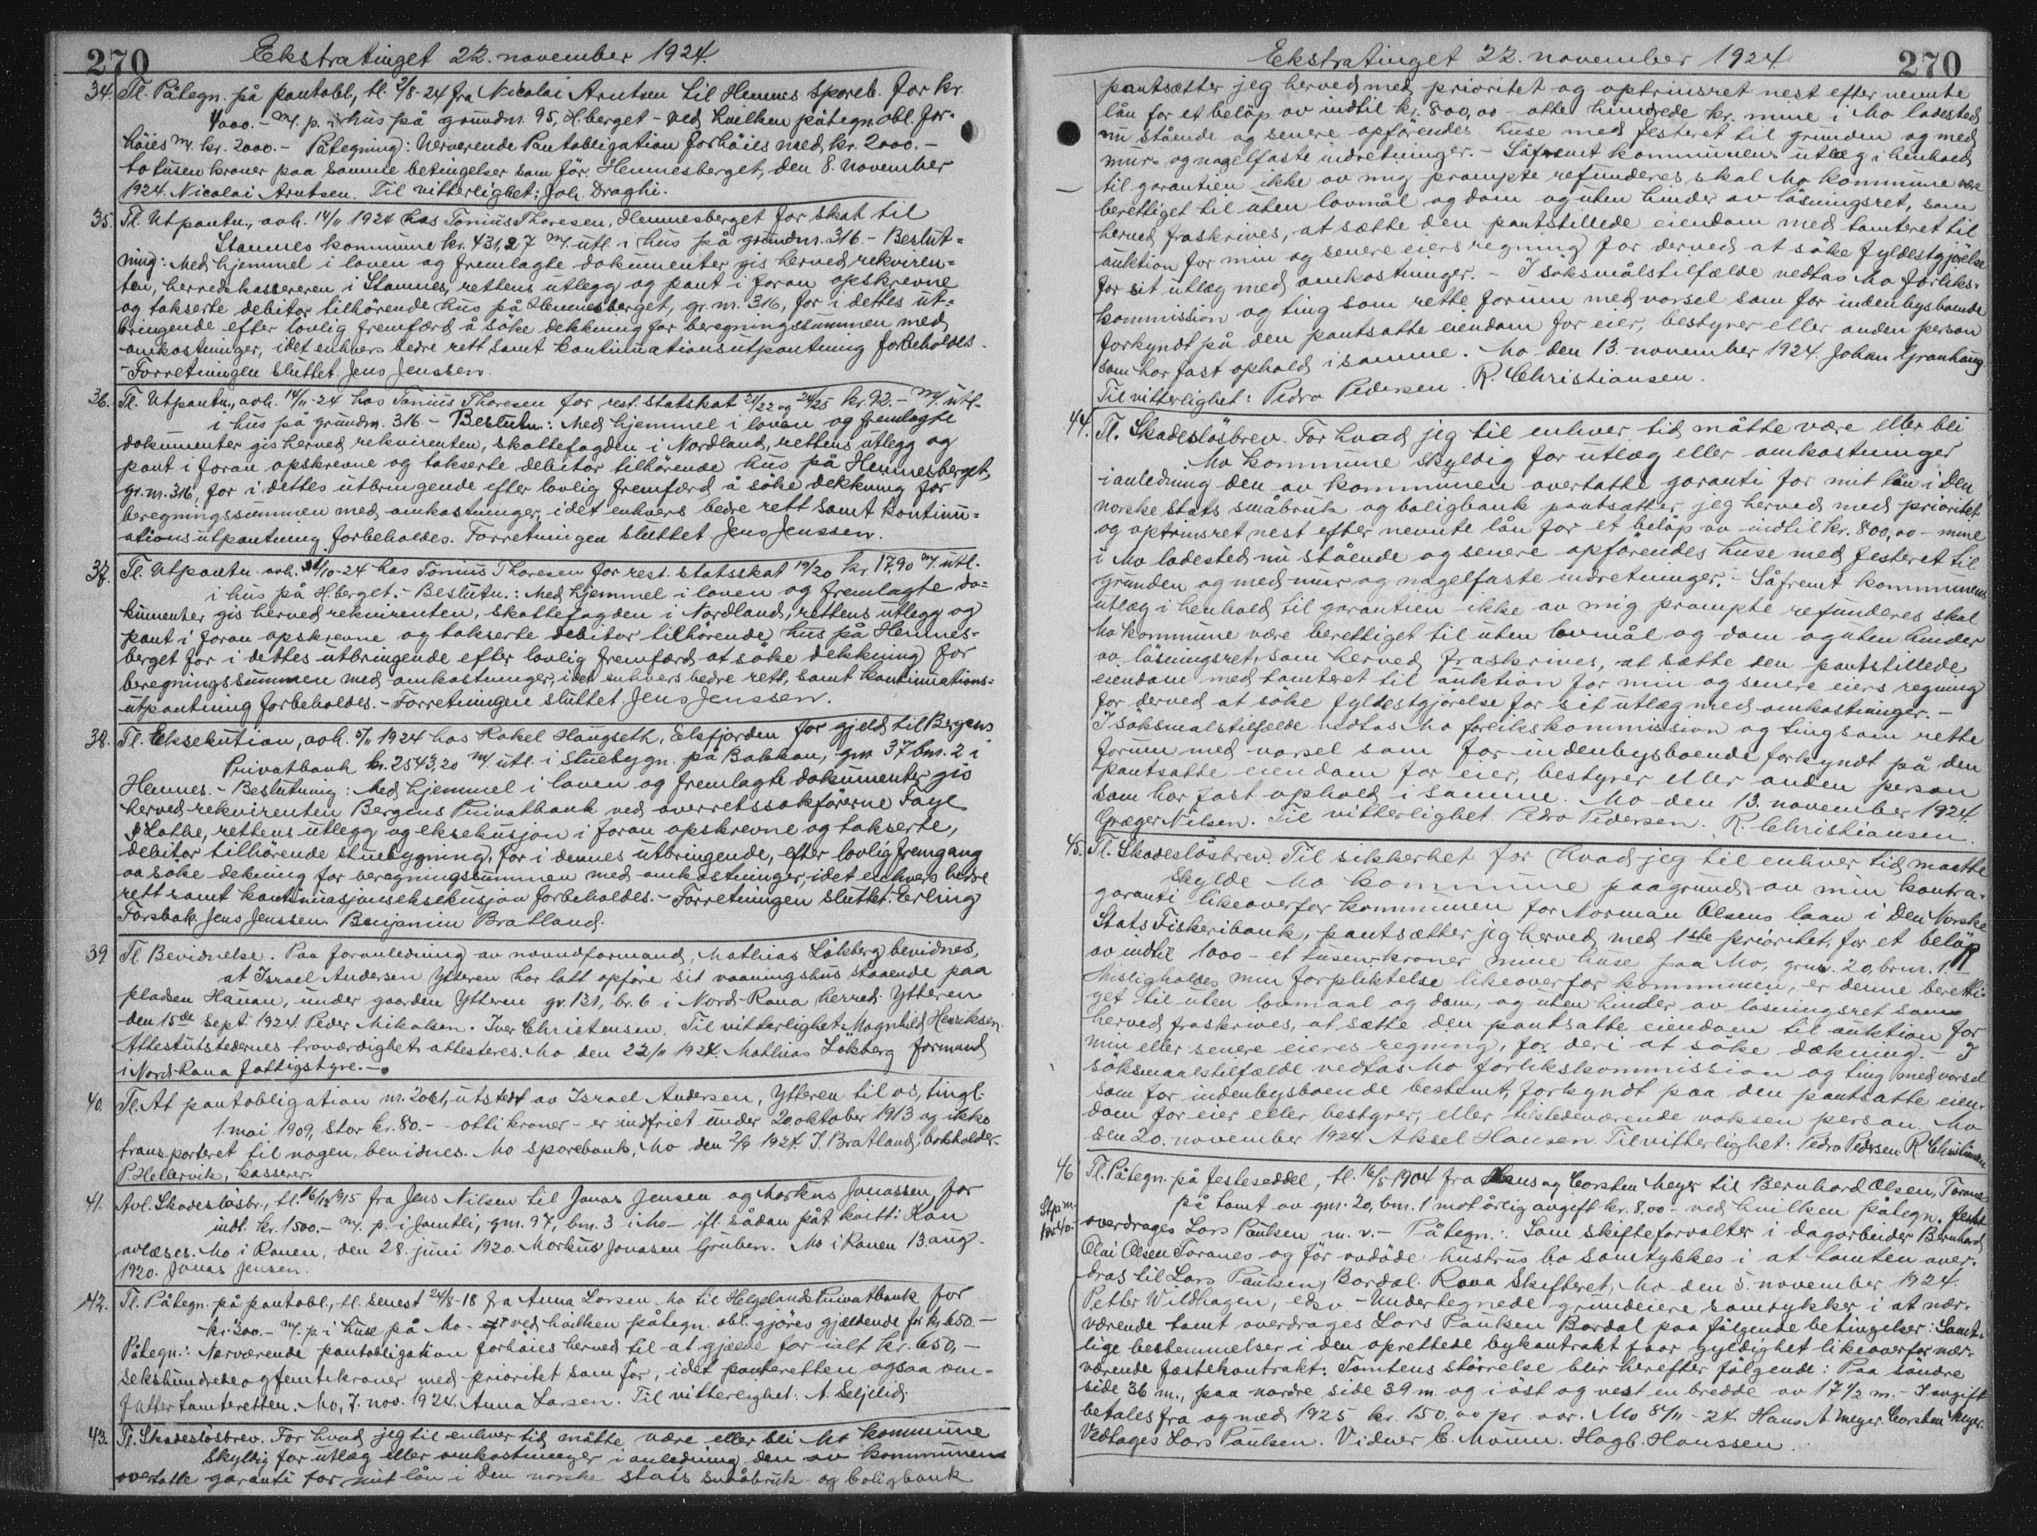 270
Ekstratinget 22. november 1924.
34. Tl. Påtegn. på pantobl., tl. 2/8-24 fra Nicolai Arntsen til Hemnes Spareb. for kr.
4000.- m/. p. i hus på grundnr. 95, H.berget - ved hvilken påtegn. obl. for-
höies m/. kr. 2000.- Påtegning: Nerværende Pantobligation forhöies med kr. 2000.-
to tusen kroner paa samme betingelser som för. Hemnesberget, den 8. november
1924. Nicolai Arntsen. Til vitterlighet: Joh. Draghi.
35. Tl. Utpantn., avh. 14/11 1924 hos Tönius Thoresen, Hemnesberget for skat til
Stamnes kommune kr. 431,27 m/. utl. i hus på grundnr. 316.- Beslut-
ning: Med hjemmel i loven og fremlagte dokumenter gis herved rekviren-
ten, herredskassereren i Stamnes, rettens utlegg og pant i foran opskrevne
og takserte debitor tilhörende hus på Hemnesberget, gr. nr. 316, for i dettes ut-
bringende efter lovlig fremfærd å söke dekkning for beregningssummen med
omkostninger, idet enhvers bedre rett samt kontinuationsutpantning forbeholdes.
- Forretningen sluttet. Jens Jenssen.
36. Tl. Utpantn., avh. 14/11-24 hos Tönius Thoresen for rest. statsskat 21/22 og 24/25 kr. 92.- m/. utl.
i hus på grundnr. 316 - Beslutn.: Med hjemmel i loven og fremlagte
dokumenter gis herved rekvirenten, skattefogden i Nordland, rettens utlegg og
pant i foran opskrevne og takserte debitor tilhörende hus på Hemnesberget,
gr. nr. 316, for i dettes utbringende efter lovlig fremfærd å söke dekkning for
beregningssummen med omkostninger, idet enhvers bedre rett samt kontinu-
ationsutpantning forbeholdes. Forretningen sluttet Jens Jenssen.
37. Tl. Utpantn. avh. 31/10-24 hos Tönius Thoresen for rest. statsskat 19/20 kr. 17,90 m/. utl.
i hus på H.berget.- Beslutn.: Med hjemmel i loven og fremlagte do-
kumenter gis herved rekvirenten, skattefogden i Nordland, rettens utlegg og
pant i foran opskrevne og takserte debitor tilhörende hus på Hemnes-
berget for i dettes utbringende efter lovlig fremfærd at söke dekkning for
beregningssummen med omkostninger, idet enhvers bedre rett, samt kontinuations-
utpantning forbeholdes. - Forretningen sluttet. Jens Jenssen.
38. Tl. Eksekution, avh. 5/11 1924 hos Rakel Haugseth, Elsfjorden for gjeld til Bergens
Privatbank kr. 2543,20 m/. utl. i Stuebygn. på Bakkan, gnr 37 bnr. 2 i
Hemnes. - Beslutning: Med hjemmel i loven og fremlagte dokumenter gis
herved rekvirenten Bergens Privatbank ved overrettssakförerne Faye
& Lothe, rettens utlegg og eksekusjon i foran opskrevne og takserte,
debitor tilhörende stuebygning, for i dennes utbringende, efter lovlig fremgang
aa söke dekning for beregningssummen med omkostninger, idet enhvers bedre
rett samt kontinuasjonseksekusjon forbeholdes. - Forretningen sluttet. Erling
Forsbak. Jens Jenssen. Benjamin Bratland.
39. Tl. Bevidnelse. Paa foranledning av navnd formand, Mathias Låkberg bevidnes,
at Israel Andersen Ytteren har latt opföre sit vaaningshus staaende paa
pladsen Hauan, under gaarden Ytteren gr. 131, br. 6 i Nord-Rana herred. Ytteren
den 15de Sept. 1924. Peder Mikalsen. Iver Christensen. Til vitterlighet: Magnhild Henriksen.
Attestutstedernes troværdighet attesteres. Mo den 22/11 1924. Mathias Låkberg formand
i Nord-Rana fattigstyre. -
40. Tl. At pantobligation nr. 2061, utstedt av Israel Andersen, Ytteren til os, tingl.
1. mai 1909, stor kr. 80.- - otti kroner - er indfriet under 20 oktober 1913 og ikke
transporteret til nogen, bevidnes. Mo sparebank, Mo den 2/9 1924. J. Bratland, bokholder.
P. Hellervik, kasserer.
41. Avl. Skadeslösbr., tl. 16/12 1915 fra Jens Nilsen til Jonas Jensen og Markus Jonassen, for
indt. kr. 1500.- m/. p. i Jamtli, gnr. 97, bnr. 3 i Mo - ifl. sådan påt. kvitt: Kan
avlæses. Mo i Ranen, den 28. juni 1920. Markus Jonasen Gruben. Mo i Ranen 13. aug.
1920. Jonas Jensen.
42. Tl. Påtegn. på pantobl., tl. senest 24/8-18 fra Anna Larsen Mo til Helgelands Privatbank for
kr. 300.- m/. p. i huse på Mo - ved hvilken påtegn. obl. gjöres gjældende for kr. 650.-
Påtegn.: Nærværende pantobligation forhöies herved til at gjælde for ialt kr. 650,-
sekshundrede og femti kroner med prioritet som för, idet panteretten ogsaa om-
fatter tomteretten. Mo, 7. nov. 1924. Anna Larsen. Til vitterlighet: A. Seljelid.
43. Tl. Skadeslösbrev. For hvad jeg til enhver tid måtte være eller bli Mo kommune
skyldig for utlæg eller omkostninger i anledning den av kommunen
overtatte garanti for mit lån i Den norske stats småbruk- og boligbank
270
Ekstratinget 22. november 1924.
pantsætter jeg herved med prioritet og optrinsret nest efter nevnte
lån for et belöp av indtil kr. 800,00 - otte hundrede kr. mine i Mo ladested
nu stående og senere opförendes huse med festeret til grunden og med
mur- og nagelfaste indretninger. - Såfremt kommunens utlæg i henhold
til garantien ikke av mig prompte refunderes skal Mo kommune være
berettiget til uten lovmål og dom og uten hinder av lösningsret, som
herved fraskrives, at sætte den pantstillede eiendom med tomteret til
auktion for min og senere eiers regning for derved at söke fyldestgjörelse
for sit utlæg med omkostninger. - I söksmålstilfælde vedtas Mo forliks-
kommission og ting som rette forum med varsel som for indenbysboende
forkyndt på den pantsatte eiendom for eier, bestyrer eller anden person
som har fast ophold i samme. Mo den 13. november 1924. Johan Granhaug
Til vitterlighet: Pedro Pedersen. R. Christiansen.
44. Tl. Skadeslösbrev. For hvad jeg til enhver tid måtte være eller bli
Mo kommune skyldig for utlæg eller omkostninger
i anledning den av kommunen overtatte garanti for mit lån i Den
norske stats småbruk og boligbank pantsætter jeg herved med prioritet
og optrinsret nest efter nevnte lån for et belöp av indtil kr. 800,00 - mine
i Mo ladested nu stående og senere opförendes huse med festeret til
grunden og med mur og nagelfaste indretninger. - Såfremt kommunens
utlæg i henhold til garantien ikke av mig prompte refunderes skal
Mo kommune være berettiget til uten lovmål og dom og uten hinder
av lösningsret, som herved fraskrives, at sætte den pantstillede
eiendom med tomteret til auktion for min og senere eiers regning
for derved at söke fyldestgjörelse for sit utlæg med omkostninger. -
I söksmålstilfælde vedtas Mo forlikskommission og ting som rette
forum med varsel som for indenbysboende forkyndt på den
pantsatte eiendom for eier, bestyrer eller anden person
som har fast ophold i samme. Mo den 13. november 1924
Græger Nilsen. Til vitterlighet. Pedro Pedersen. R. Christiansen.
45. Tl. Skadeslösbrev. Til sikkerhet for hvad jeg til enhver tid maatte
skylde Mo kommune paagrund av min kontra-
garanti likeoverfor kommunen for Norman Olsens laan i Den Norske
Stats Fiskeribank, pantsætter jeg herved med 1ste prioritet, for et belöp
av indtil 1000 - et tusen - kroner mine huse paa Mo, grnr. 20, brnr. 1. -
Misligholdes min forpliktelse likeoverfor kommunen, er denne beretti-
get til uten lovmaal og dom, og uten hinder av lösningsret som
herved fraskrives, at sætte den pantsatte eiendom til auktion for
min eller senere eieres regning, for deri at söke dækning. - I
söksmaalstilfælde vedtas Mo forlikskommission og ting med varsel
som for indenbysboende bestemt, forkyndt paa den pantsatte eien-
dom for eier eller bestyrer, eller tilstedeværende voksen person. Mo
den 20. november 1924. Aksel Hansen. Til vitterlighet: Pedro Pedersen R. Christiansen
46. Tl. Påtegn. på festeseddel, tl. 16/5 1904 fra Hans og Corsten Meyer til Bernhard Olsen, Toranes
på tomt av gnr. 20, bnr. 1 mot årlig avgift kr. 8,00 - ved hvilken påtegn. festet
Stpm.
for 40.-
overdrages Lars Paulsen m. v. - Påtegn.: Som skifteforvalter i dagarbeider Bernhard
Olai Olsen Toranes og för avdöde hustrus bo samtykkes i at tomten over-
dras til Lars Paulsen, Bardal. Rana Skifteret, Mo den 5 november 1924.
Petter Wildhagen, edsv. - Undertegnede grundeiere samtykker i at nær-
værende tomt overdrages Lars Paulsen Bardal paa fölgende betingelser: Samt-
lige bestemmelser i den oprettede bykontrakt faar gyldighet likeoverfor nær-
værende fæstekontrakt. Tomtens störrelse blir herefter fölgende: Paa söndre
side 36 m., paa nordre side 39 m. og i öst og vest en bredde av 17½ m. - I avgift
betales fra og med 1925 kr. 150,00 pr. aar. Mo 8/11-24. Hans A. Meyer. Corsten Meyer.
Vedtages Lars Paulsen. Vidner C. Moum. Hagb. Hanssen.